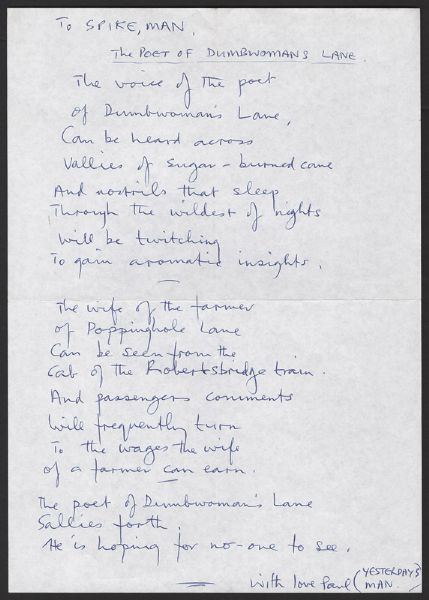 To SPIKE, MAN.
The POET OF DUMBWOMAN'S LANE.
The voice of the poet
of Dumbwoman's Lane,
Can be heard across
Vallies of sugar-burned cane
And nostrils that sleep
Through the wildest of nights
Will be twitching
To gain aromatic insights.
The wife of the farmer
of Poppinghole Lane
Can be seen from the
Cab of the Robertsbridge train.
And passengers comments
Will frequently turn
To the wages the wife
of a farmer can earn.
The poet of Dumbwoman's Lane
Sallies forth.
He is hoping for no-one to see.
With love Paul (YESTERDAYS MAN.)